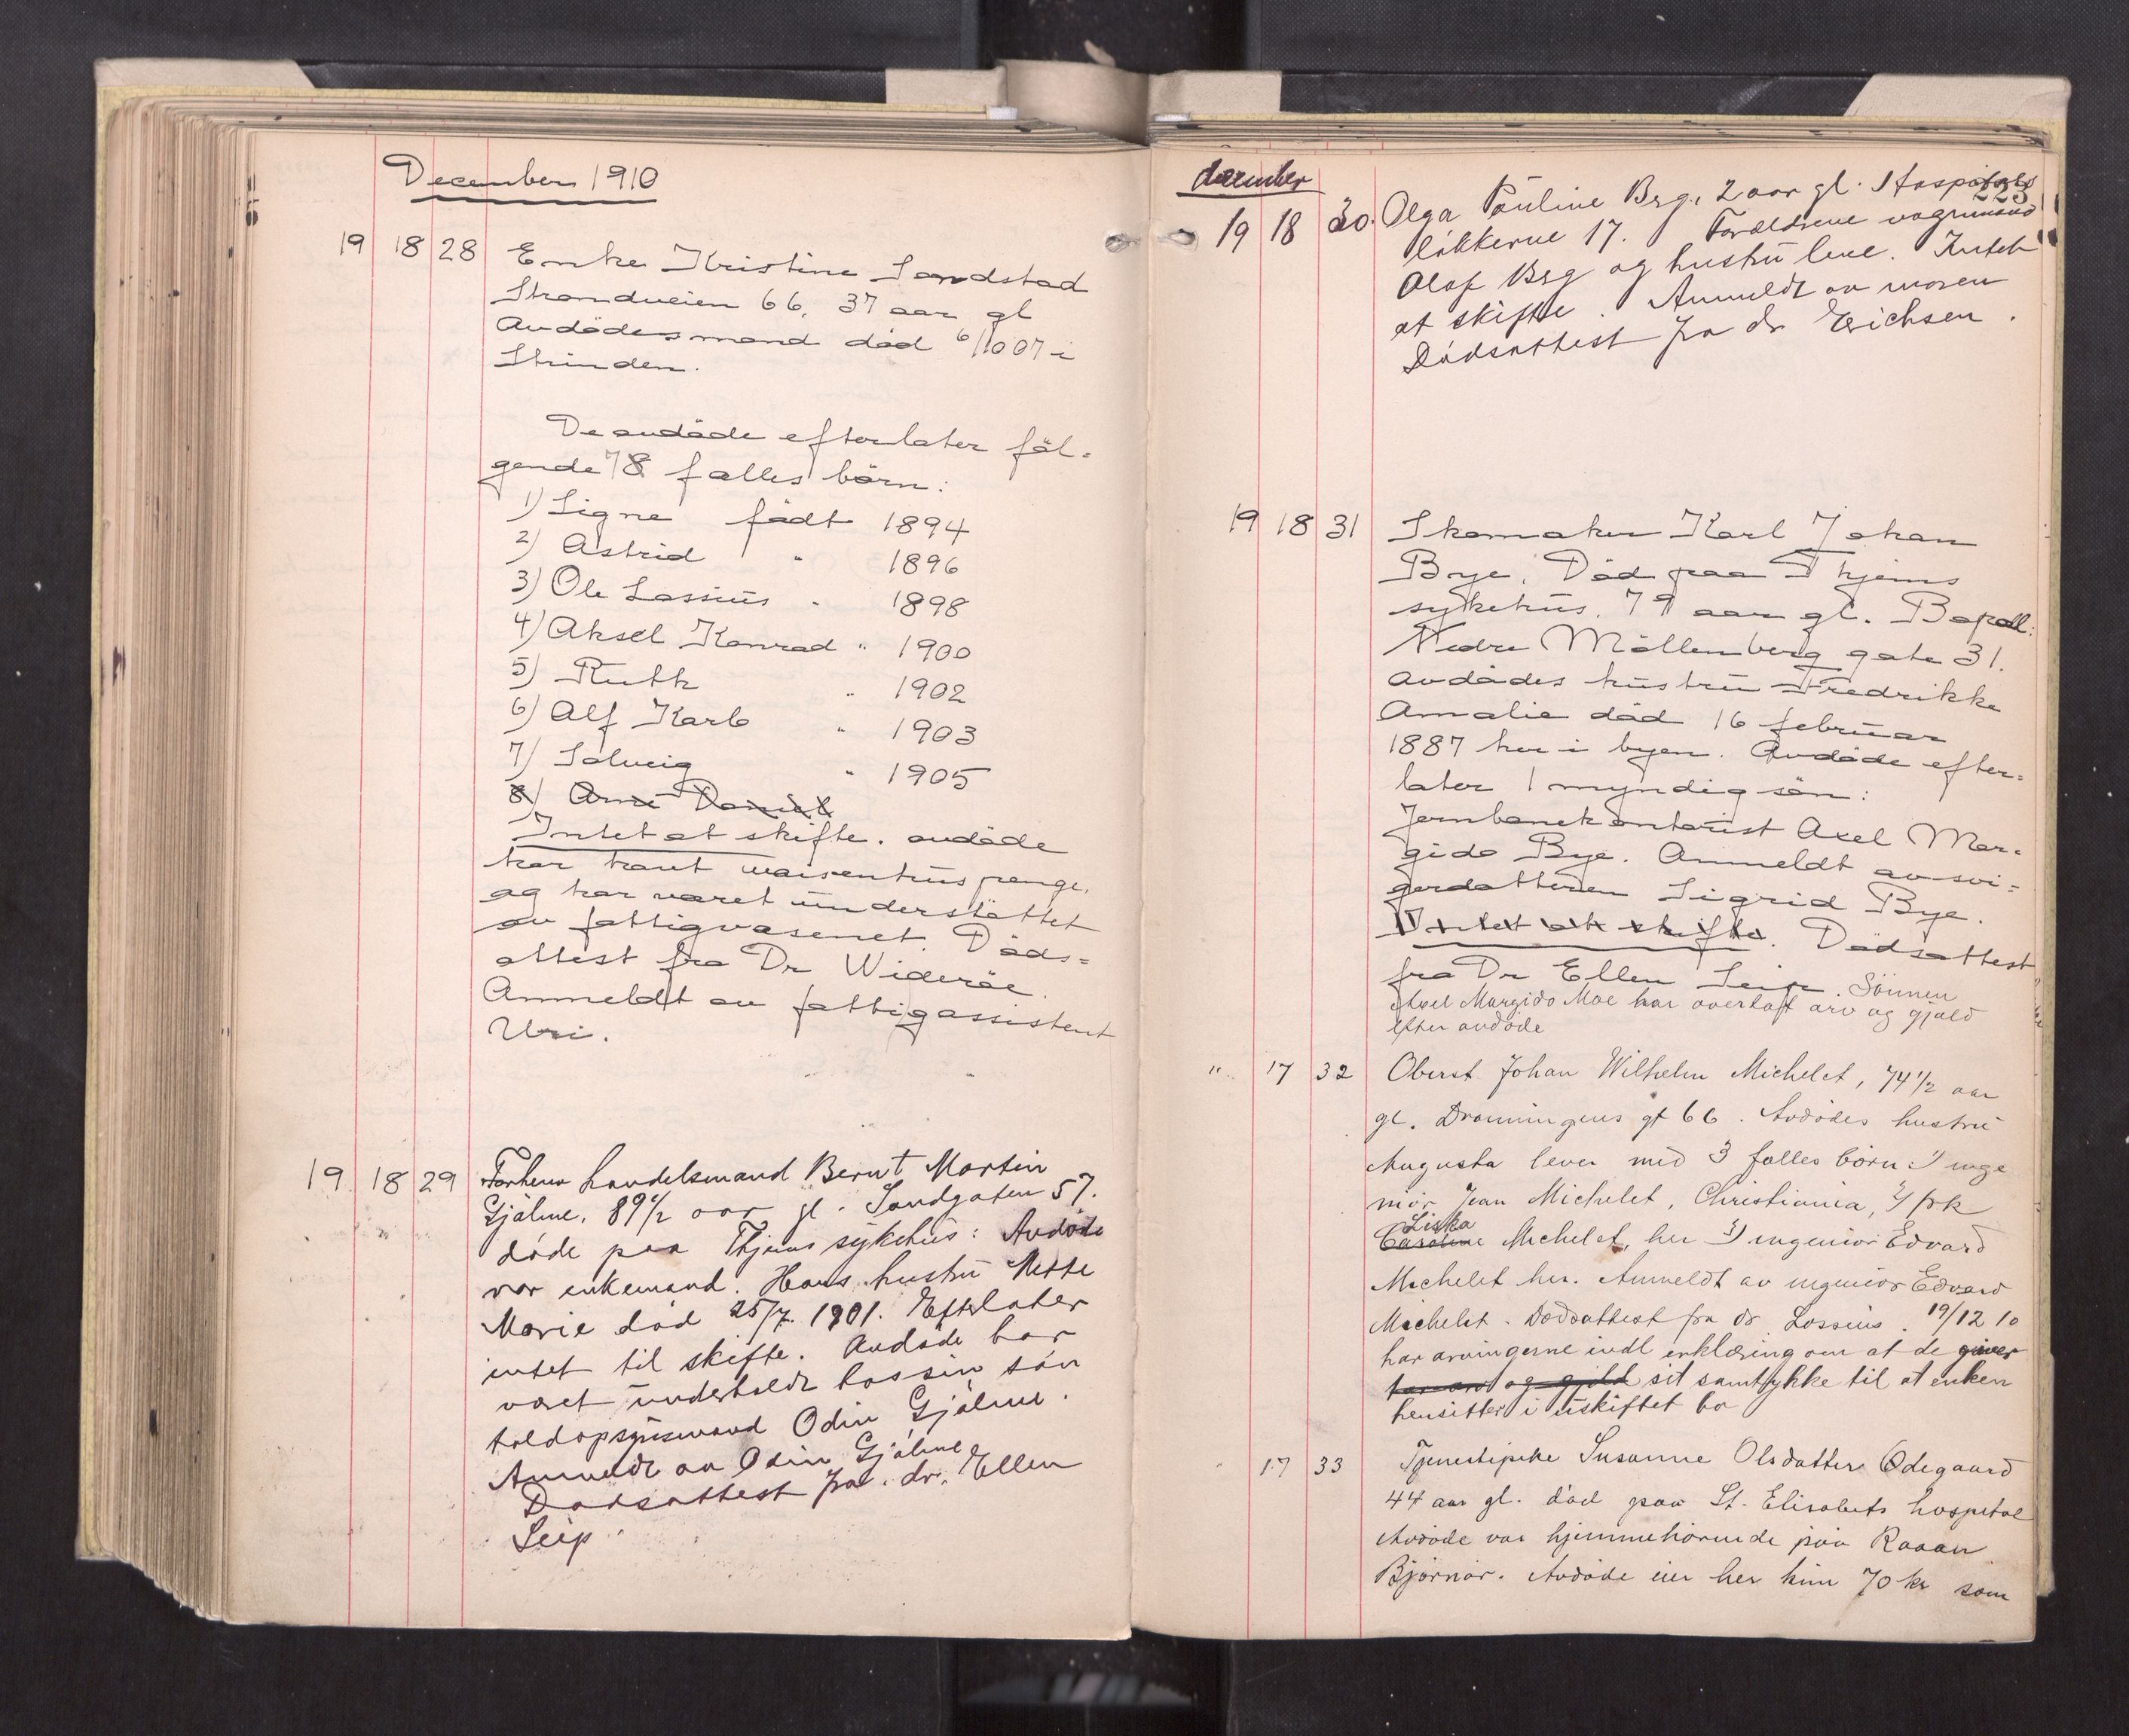 December 1910
19 18 28 Enke Kristine Sandstad
Strandveien 66, 37 aar gl
Avdödes mand död 6/10 07 i
Strinden.
De avdöde efterlater föl-
gende 7 8 falles börn:
1) Signe födt 1894
2) Astrid " 1896
3) Ole Lassius " 1898
4) Aksel Konrad " 1900
5) Ruth " 1902
6) Alf Karlo " 1903
7) Solveig " 1905
8) Arne Daniel
Intet at skifte. avdöde
har havt waisenhus penge,
og har været understöttet
av fattigvæsenet. Döds-
attest fra Dr Wideröe.
Anmeldt av fattigassistent
Uri.
19 18 29 Forhenv handelsmand Bernt Martin
Gjölme, 89 1/2 aar gl. Sandgaten 57.
döde paa Thjems sykehus: Avdöde
var enkemand. Hans hustru Mette
Marie död 25/7. 1901. Efterlater
intet til skifte. Avdöde har
været underholdt hos sin sön
toldopsynsmand Odin Gjölme.
Anmeldt av Odin Gjölme
Dödsattest fra dr. Ellen
Seip.
december
223
19 18 30. Olga Pauline Berg, 2 aar gl. Hospitals
løkkerne 17. Forældrene vognmand
Olaf Berg og hustru leve. Intet
at skifte. Anmeldt av moren
Dödsattest fra dr Erichsen.
19 18 31 Skomaker Karl Johan
Bye. Död paa Thjems
sykehus. 79 aar gl. Bopæl:
Nedre Möllenberg gate 31.
Avdödes hustru Fredrikke
Amalie död 16 februar
1887 her i byen. Avdöde efter-
later 1 myndig sön:
Jernbanekontorist Axel Mar-
gido Bye. Anmeldt av svi-
gerdatteren Sigrid Bye.
Intet at skifte. Dödsattest
fra Dr Ellen Seip. Sönnen
Axel Margido Moe har overtat arv og gjæld
efter avdöde
" 17 32 Oberst Johan Wilhelm Michelet, 74 1/2 aar
gl. Dronningens gt 66. Avdödes hustru
Augusta lever med 3 falles börn: 1) inge
niör Jean Michelet, Christiania, 2) frk
Liska
Caroline Michelet, her 3) ingeniör Edvard
Michelet her. Anmeldt av ingeniör Edvard
Michelet. Dödsattest fra dr Lossius. 19/12 10
har arvingerne indl erklæring om at de giver
tar arv og gjæld sit samtykke til at enken
hensitter i uskiftet bo
" 17 33 Tjenestepike Susanne Olsdatter Ödegaard
44 aar gl. död paa St. Elisabets hospital
Avdöde var hjemmehörende paa Raaan
Björnör. Avdöde eier her kun 70 kr som